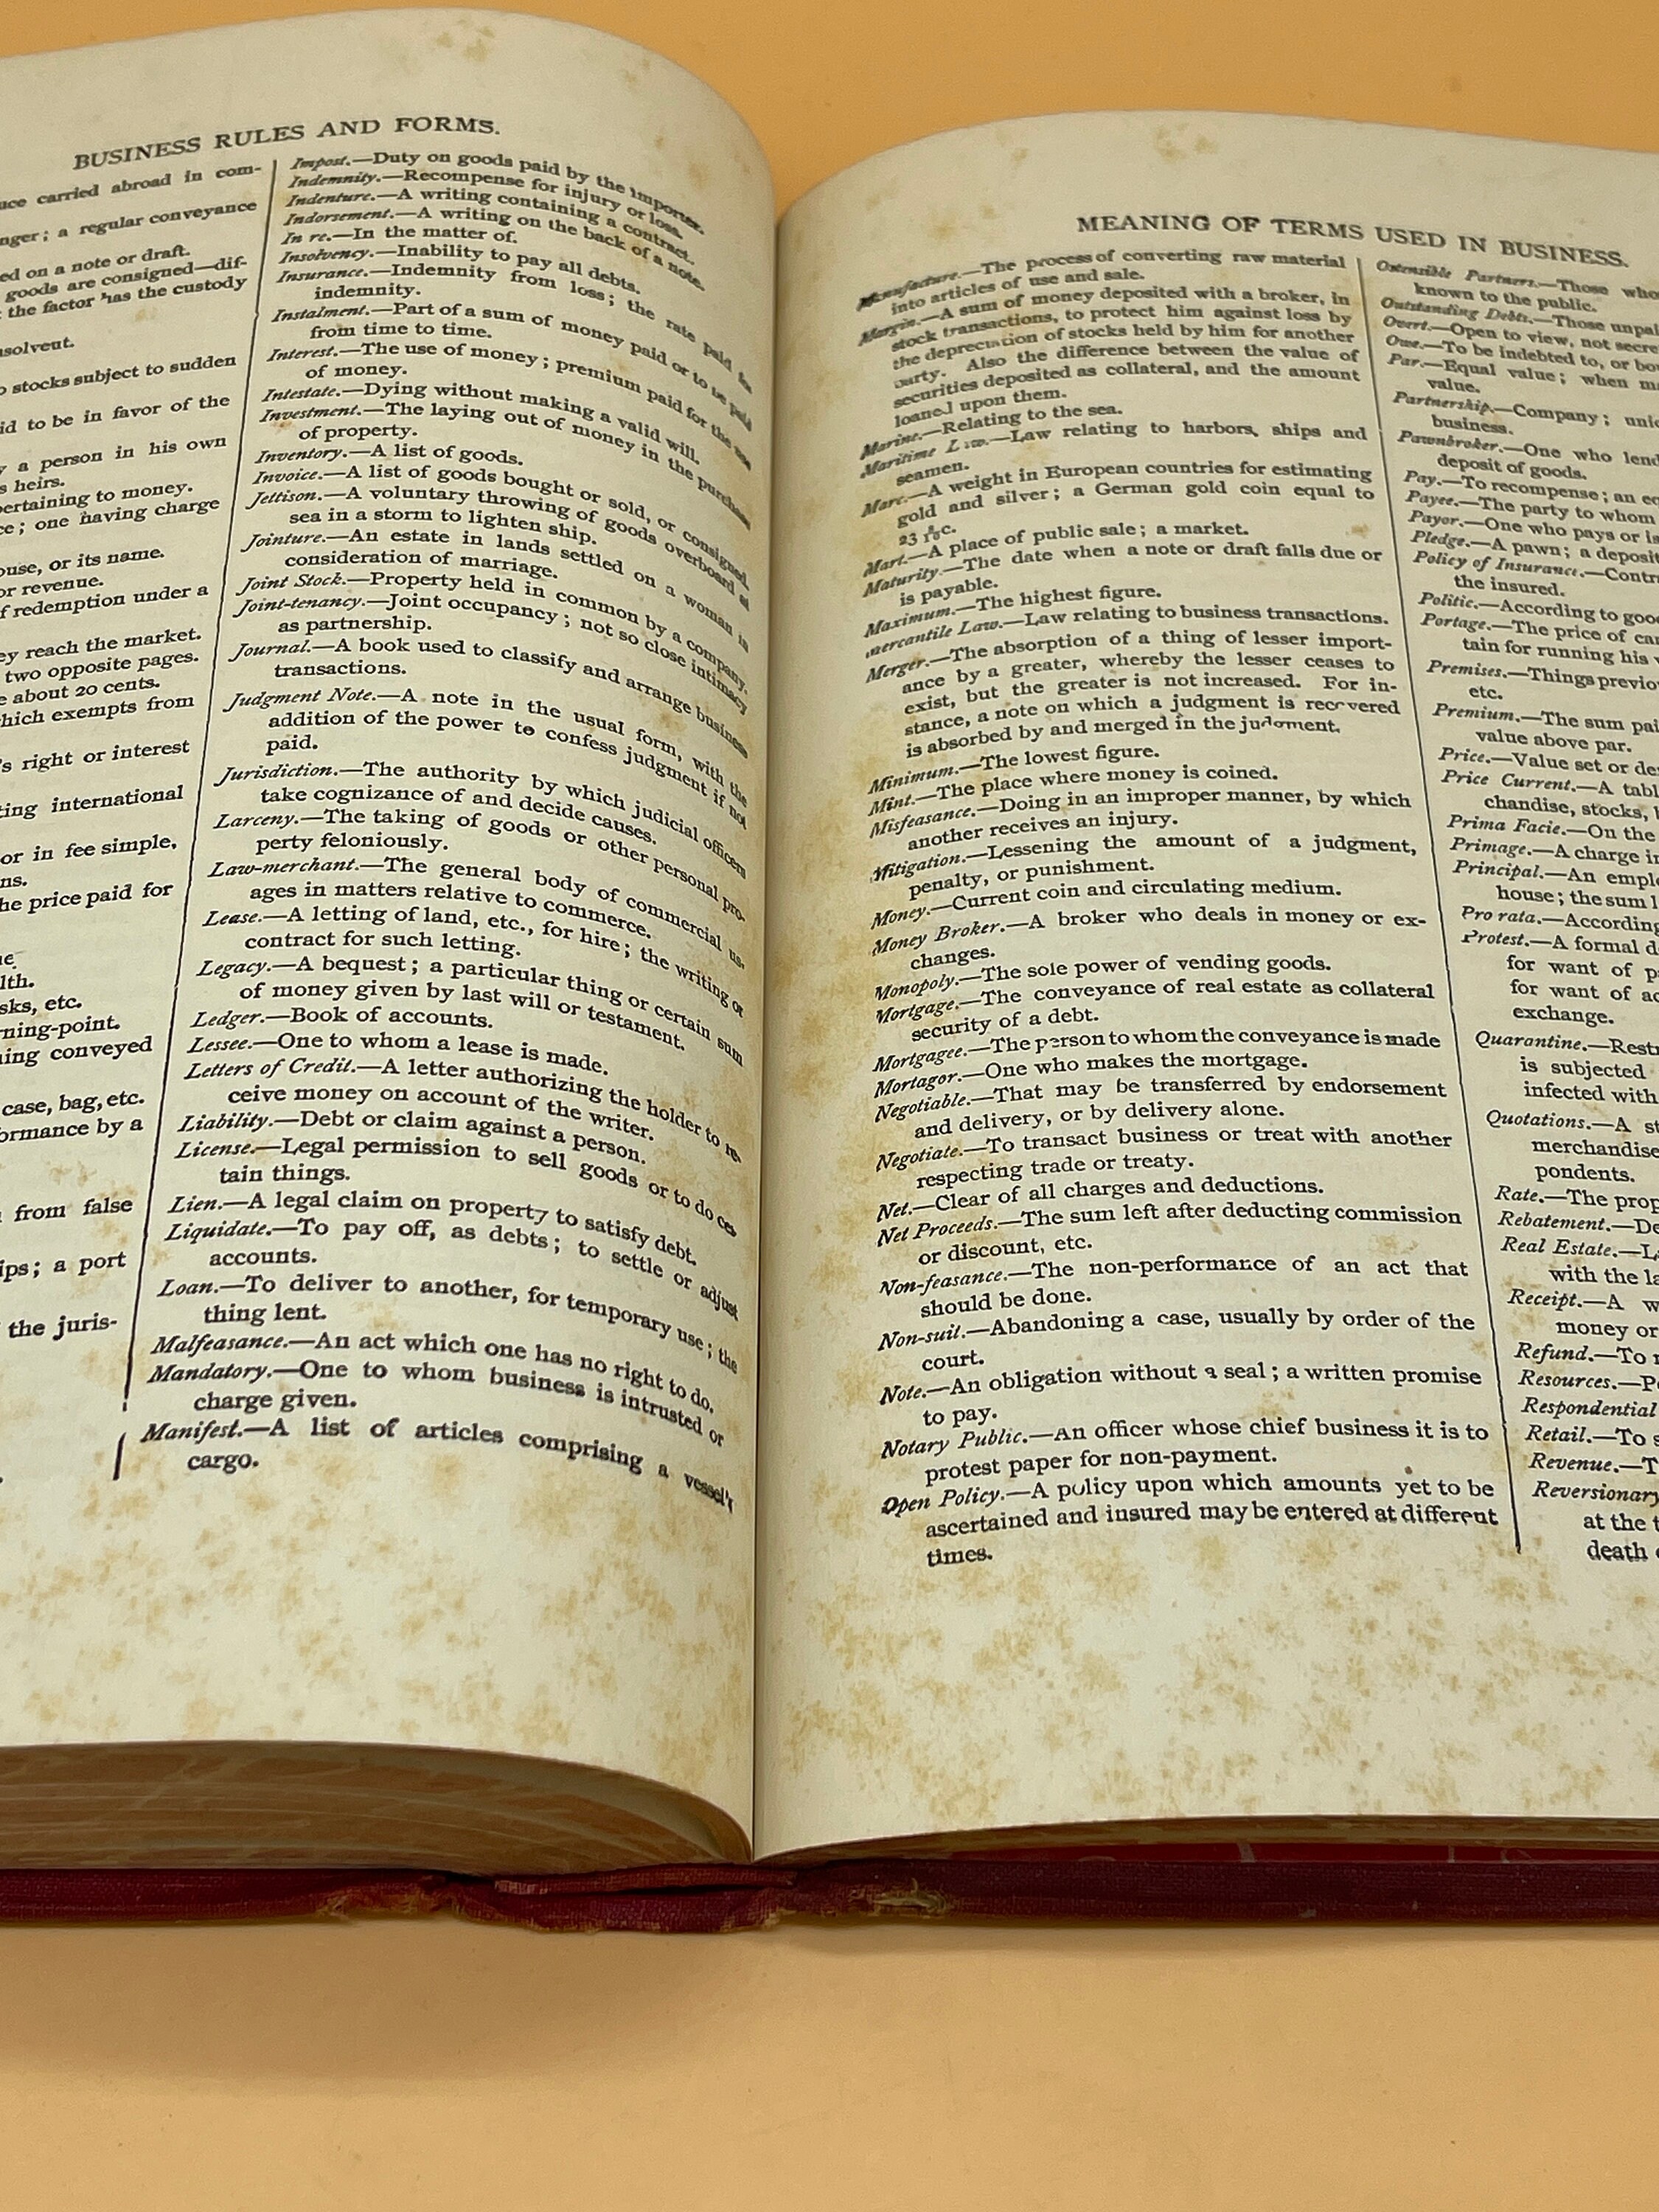 BUSINESS RULES AND FORMS.
carried abroad in com-
a regular conveyance
ed on a note or draft.
goods are consigned—dif-
the factor has the custody
stocks subject to sudden
to be in favor of the
a person in his own
s heirs.
pertaining to money.
one having charge
or its name.
or revenue.
redemption under a
reach the market.
two opposite pages.
about 20 cents.
which exempts from
right or interest
international
or in fee simple,
price paid for
etc.
conveyed
case, bag, etc.
by a
from false
a port
the juris-
Impost.—Duty on goods paid by the importer.
Indemnity.—Recompense for injury or loss.
Indenture.—A writing containing a contract.
Indorsement.—A writing on the back of a note.
In re.—In the matter of.
Insolvency.—Inability to pay all debts.
Insurance.—Indemnity from loss; the rate paid for
indemnity.
Instalment.—Part of a sum of money paid or to be paid
from time to time.
Interest.—The use of money; premium paid for the use
of money.
Intestate.—Dying without making a valid will.
Investment.—The laying out of money in the purchase
of property.
Inventory.—A list of goods.
Invoice.—A list of goods bought or sold, or consigned.
Jettison.—A voluntary throwing of goods overboard at
sea in a storm to lighten ship.
Jointure.—An estate in lands settled on a woman in
consideration of marriage.
Joint Stock.—Property held in common by a company.
Joint-tenancy.—Joint occupancy; not so close intimacy
as partnership.
Journal.—A book used to classify and arrange business
transactions.
Judgment Note.—A note in the usual form, with the
addition of the power to confess judgment if not
paid.
Jurisdiction.—The authority by which judicial officers
take cognizance of and decide causes.
Larceny.—The taking of goods or other personal pro-
perty feloniously.
Law-merchant.—The general body of commercial us-
ages in matters relative to commerce.
Lease.—A letting of land, etc., for hire; the writing or
contract for such letting.
Legacy.—A bequest; a particular thing or certain sum
of money given by last will or testament.
Ledger.—Book of accounts.
Lessee.—One to whom a lease is made.
Letters of Credit.—A letter authorizing the holder to re-
ceive money on account of the writer.
Liability.—Debt or claim against a person.
License.—Legal permission to sell goods or to do cer-
tain things.
Lien.—A legal claim on property to satisfy debt.
Liquidate.—To pay off, as debts; to settle or adjust
accounts.
Loan.—To deliver to another, for temporary use; the
thing lent.
Malfeasance.—An act which one has no right to do.
Mandatory.—One to whom business is intrusted or
charge given.
Manifest.—A list of articles comprising a vessel's
cargo.
MEANING OF TERMS USED IN BUSINESS.
Manufacture.—The process of converting raw material
into articles of use and sale.
Margin.—A sum of money deposited with a broker, in
stock transactions, to protect him against loss by
the depreciation of stocks held by him for another
party. Also the difference between the value of
securities deposited as collateral, and the amount
loaned upon them.
Marine.—Relating to the sea.
Maritime Law.—Law relating to harbors, ships and
seamen.
Marc.—A weight in European countries for estimating
gold and silver; a German gold coin equal to
Mart.—A place of public sale; a market.
Maturity.—The date when a note or draft falls due or
is payable.
Maximum.—The highest figure.
mercantile Law.—Law relating to business transactions.
Merger.—The absorption of a thing of lesser import-
ance by a greater, whereby the lesser ceases to
exist, but the greater is not increased. For in-
stance, a note on which a judgment is recovered
is absorbed by and merged in the judgment.
Minimum.—The lowest figure.
Mint.—The place where money is coined.
Misfeasance.—Doing in an improper manner, by which
another receives an injury.
Mitigation.—Lessening the amount of a judgment,
penalty, or punishment.
Money.—Current coin and circulating medium.
Money Broker.—A broker who deals in money or ex-
changes.
Monopoly.—The sole power of vending goods.
Mortgage.—The conveyance of real estate as collateral
security of a debt.
Mortgagee.—The person to whom the conveyance is made
Mortagor.—One who makes the mortgage.
Negotiable.—That may be transferred by endorsement
and delivery, or by delivery alone.
Negotiate.—To transact business or treat with another
respecting trade or treaty.
Net.—Clear of all charges and deductions.
Net Proceeds.—The sum left after deducting commission
or discount, etc.
Non-feasance.—The non-performance of an act that
should be done.
Non-suit.—Abandoning a case, usually by order of the
court.
Note.—An obligation without a seal; a written promise
to pay.
Notary Public.—An officer whose chief business it is to
protest paper for non-payment.
Open Policy.—A policy upon which amounts yet to be
ascertained and insured may be entered at different
times.
Ostensible Partners.—Those who
known to the public.
Outstanding Debts.—Those
Overt.—Open to view, not
Owe.—To be indebted to, or
Par.—Equal value; when
value.
Partnership.—Company;
business.
Pawnbroker.—One who
deposit of goods.
Pay.—To recompense; an
Payee.—The party to whom
Payor.—One who pays or
Pledge.—A pawn; a
Policy of Insurance.—
the insured.
Politic.—According to
Portage.—The price of
tain for running his
Premises.—Things
etc.
Premium.—The sum
value above par.
Price.—Value set or
Price Current.—A
chandise, stocks,
Prima Facie.—On the
Primage.—A charge
Principal.—An
house; the sum
Pro rata.—According
Protest.—A formal
for want of
for want of
exchange.
Quarantine.—
is subjected
infected with
Quotations.—A
merchandise
pondents.
Rate.—The
Rebatement.—
Real Estate.—
with the
Receipt.—A
money or
Refund.—To
Resources.—
Respondential
Retail.—To
Revenue.—
Reversionary
at the
death